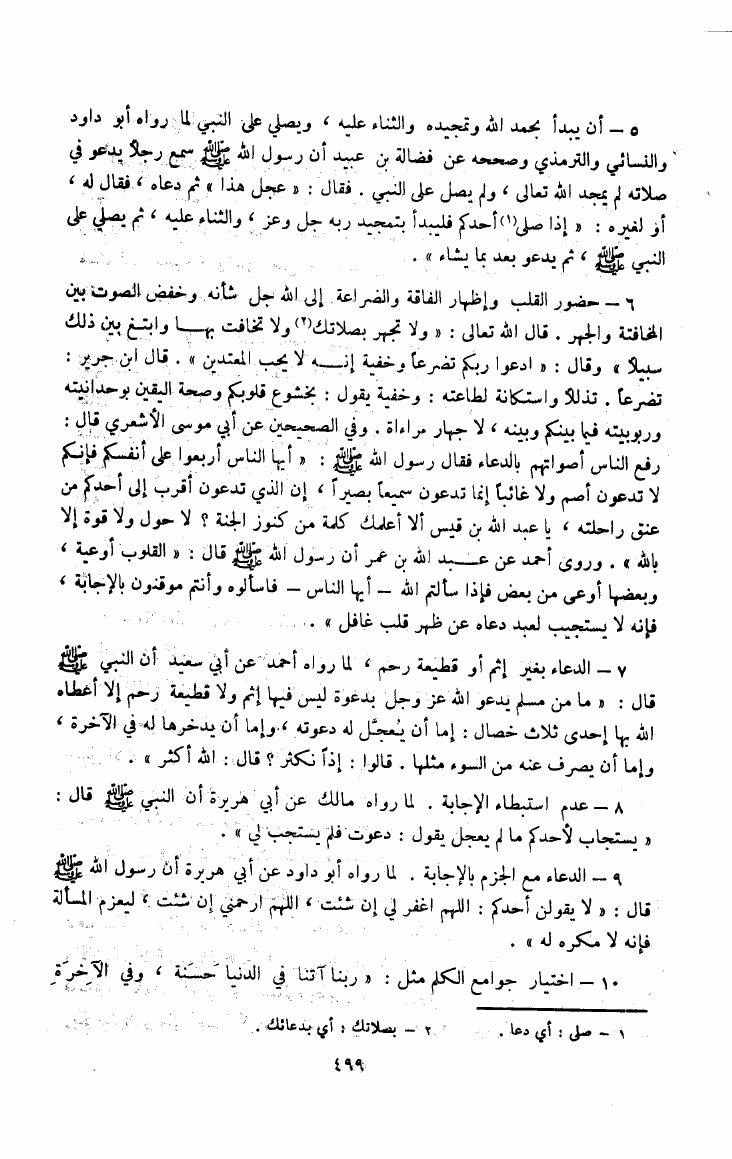 ٥ – أن يبدأ بحمد الله وتمجيده والثناء عليه ، ويصلي على النبي لما رواه أبو داود
والنسائي والترمذي وصححه عن فضالة بن عبيد أن رسول الله ﷺ سمع رجلاً يدعو في
صلاته لم يمجد الله تعالى ، ولم يصل على النبي . فقال : « عجل هذا » ثم دعاه ، فقال له ،
أو لغيره : « إذا صلى(١) أحدكم فليبدأ بتمجيد ربه جل وعز ، والثناء عليه ، ثم يصلي على
النبي ﷺ ، ثم يدعو بعد بما يشاء » .
٦ – حضور القلب وإظهار الفاقة والضراعة إلى الله جل شأنه وخفض الصوت بين
المخافتة والجهر . قال الله تعالى : « ولا تجهر بصلاتك(٢) ولا تخافت بهـا وابتغ بين ذلك
سبيلاً » وقال : « ادعوا ربكم تضرعاً وخفية إنـه لا يحب المعتدين » . قال ابن جرير :
تضرعاً . تذللاً واستكانة لطاعته : وخفية يقول : بخشوع قلوبكم وصحة اليقين بوحدانيته
وربوبيته فيما بينكم وبينه ، لا جهار مراءاة . وفي الصحيحين عن أبي موسى الأشعري قال :
رفع الناس أصواتهم بالدعاء فقال رسول الله ﷺ : « أيها الناس أربعوا على أنفسكم فإنكم
لا تدعون أصم ولا غائباً إنما تدعون سميعاً بصيراً ، إن الذي تدعون أقرب إلى أحدكم من
عنق راحلته ، يا عبد الله بن قيس ألا أعلمك كلمة من كنوز الجنة ؟ لا حول ولا قوة إلا
بالله » . وروى أحمد عن عـبد الله بن عمر أن رسول الله ﷺ قال : « القلوب أوعية ،
وبعضها أوعى من بعض فإذا سألتم الله – أيها الناس – فاسألوه وأنتم موقنون بالإجابة ،
فإنه لا يستجيب لعبد دعاه عن ظهر قلب غافل » .
٧ – الدعاء بغير إثم أو قطيعة رحم ، لما رواه أحمد عن أبي سعيد أن النبي ﷺ
قال : « ما من مسلم يدعو الله عز وجل بدعوة ليس فيها إثم ولا قطيعة رحم إلا أعطاه
الله بها إحدى ثلاث خصال : إما أن يُعجَّل له دعوته ، وإما أن يدخرها له في الآخرة ،
وإما أن يصرف عنه من السوء مثلها . قالوا : إذاً نكثر ؟ قال : الله أكثر » .
٨ – عدم استبطاء الإجابة . لما رواه مالك عن أبي هريرة أن النبي ﷺ قال :
« يستجاب لأحدكم ما لم يعجل يقول : دعوت فلم يستجب لي » .
٩ – الدعاء مع الجزم بالإجابة . لما رواه أبو داود عن أبي هريرة أن رسول الله ﷺ
قال : « لا يقولن أحدكم : اللهم اغفر لي إن شئت ، اللهم ارحمني إن شئت ، ليعزم المسألة
فإنه لا مكره له » .
١٠ – اختيار جوامع الكلم مثل : « ربنا آتنا في الدنيا حَسَنة ، وفي الآخِرَةِ
١ – صلى : أي دعا . ٢ – بصلاتك : أي بدعائك .
٤٩٩